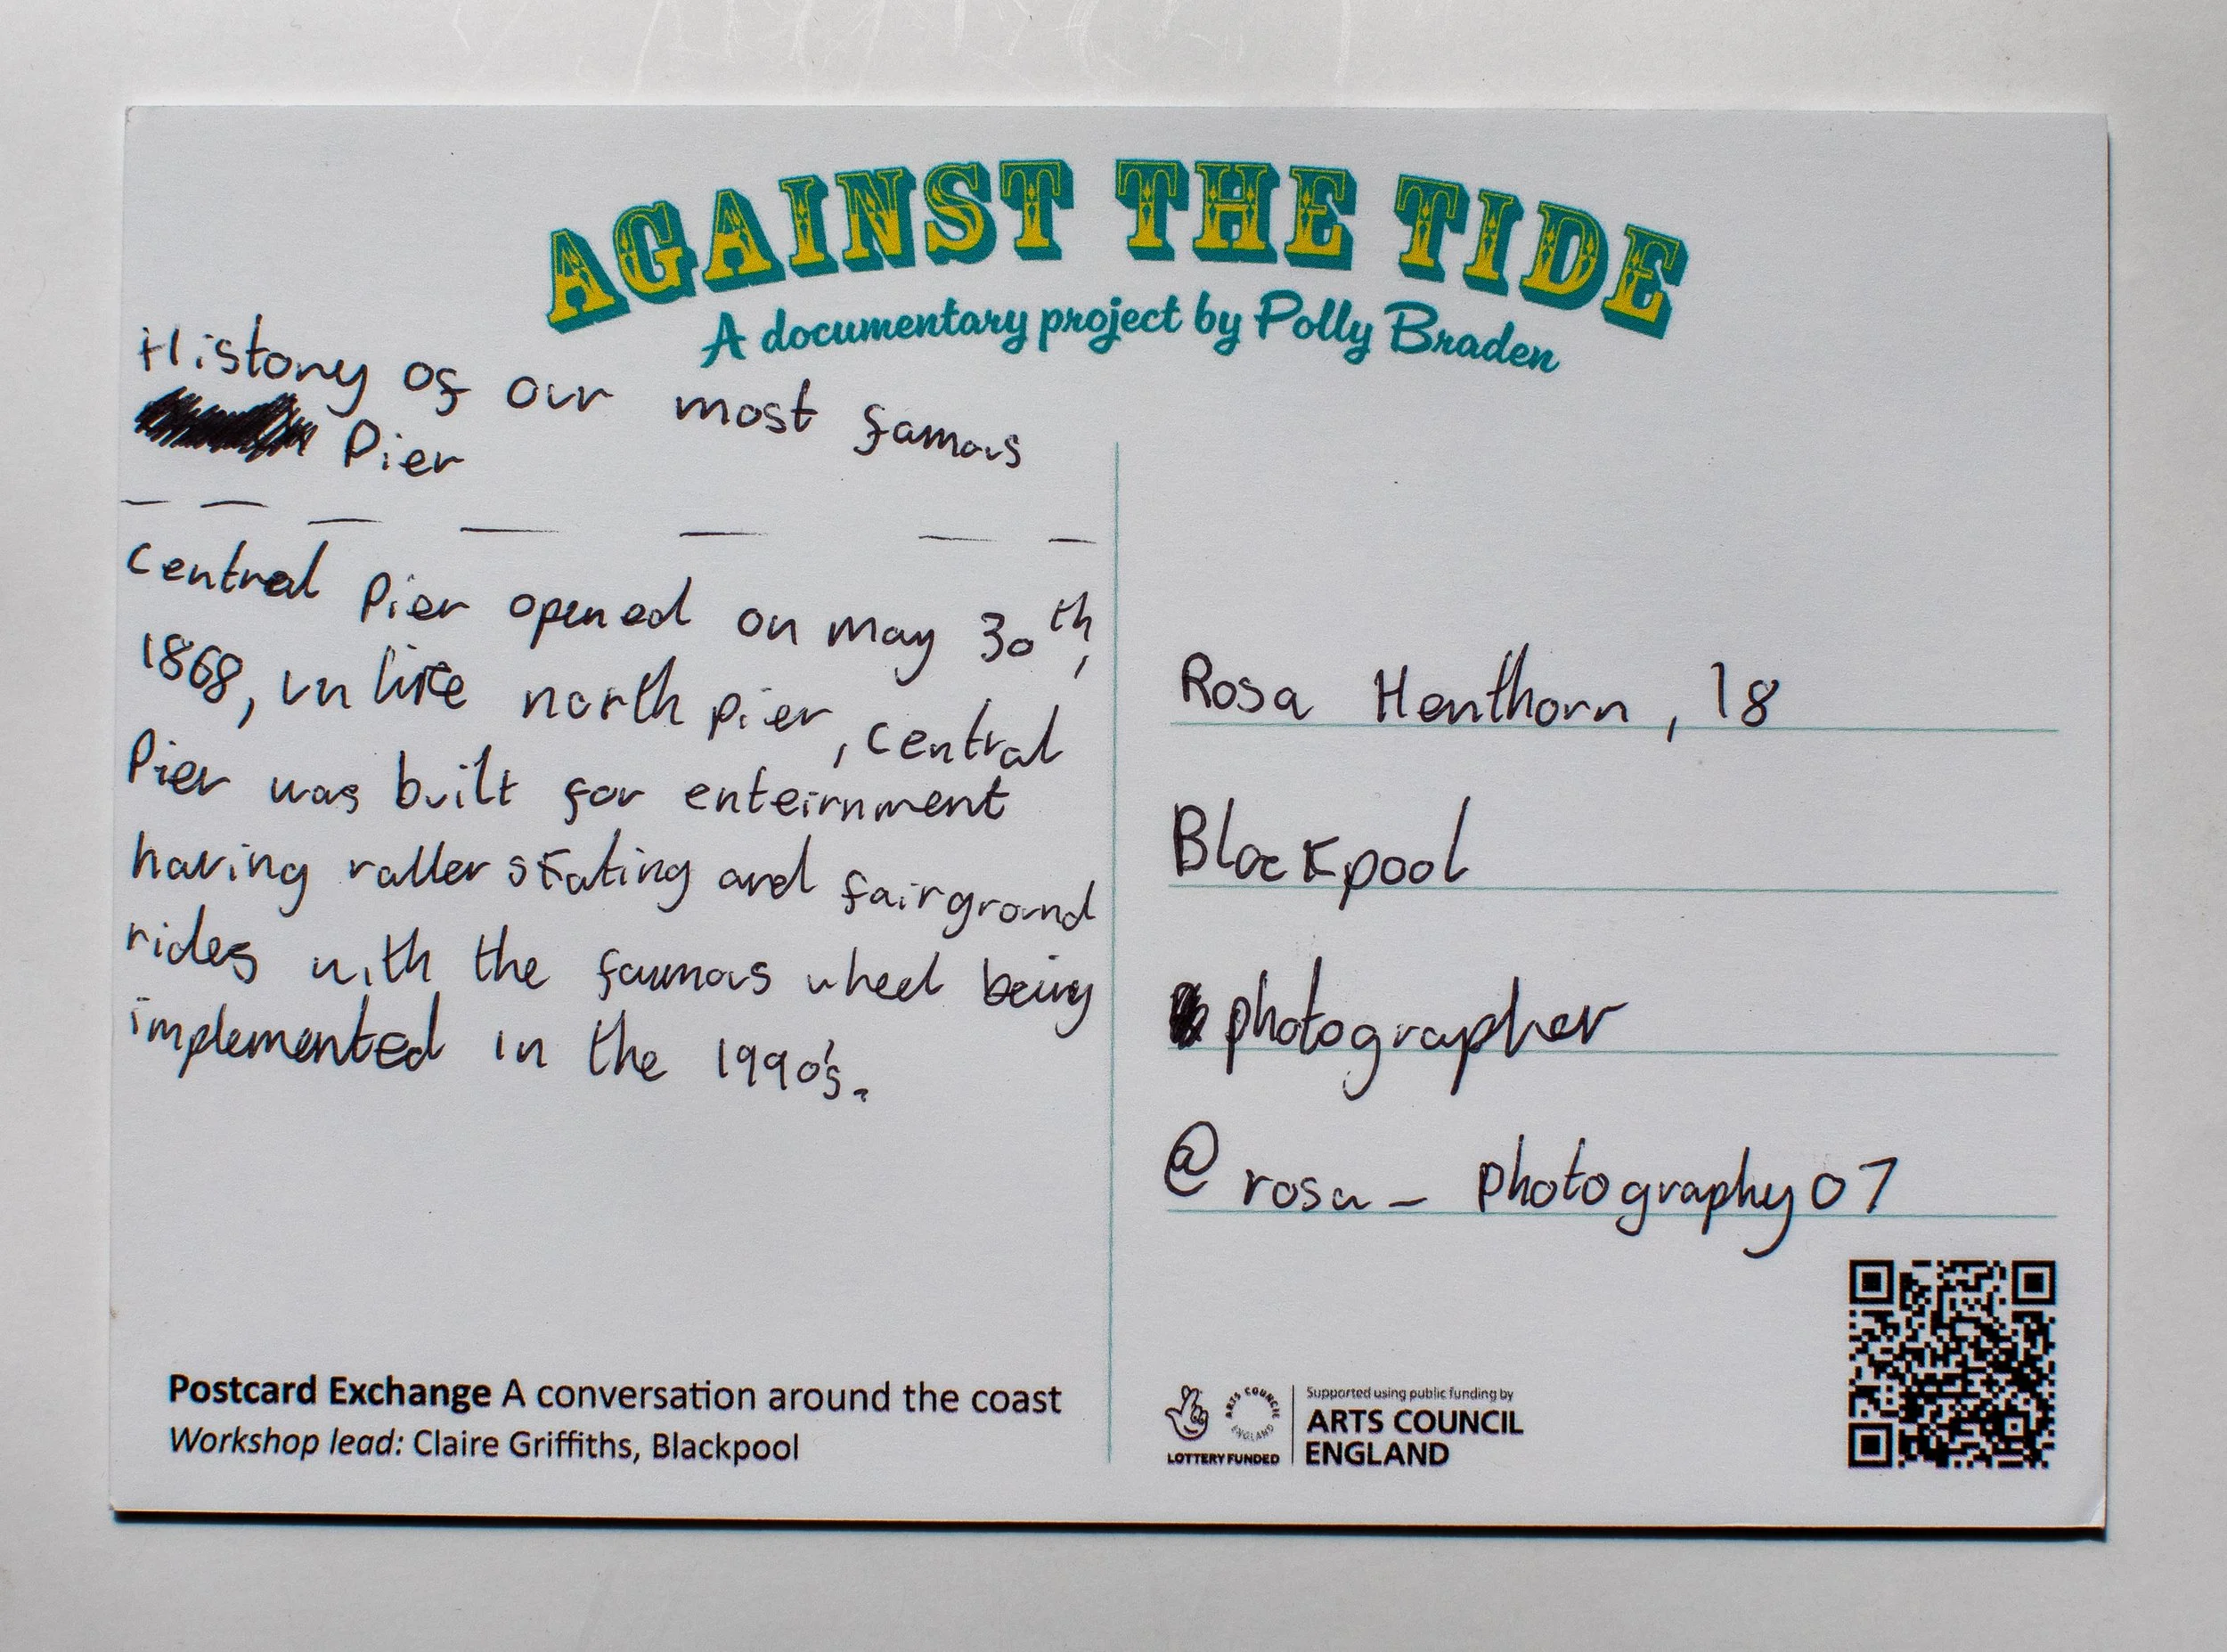 AGAINST THE TIDE
A documentary project by Polly Braden
History of our most famous
Pier
Central Pier opened on may 30th,
1868, unlike north pier, central
Pier was built for enteirnment
having roller skating and fairground
rides with the famous wheel being
implemented in the 1990's.
Rosa Henthorn, 18
Blackpool
photographer
@rosa_photography07
Postcard Exchange A conversation around the coast
Workshop lead: Claire Griffiths, Blackpool
LOTTERY FUNDED
ARTS COUNCIL ENGLAND
Supported using public funding by
ARTS COUNCIL
ENGLAND